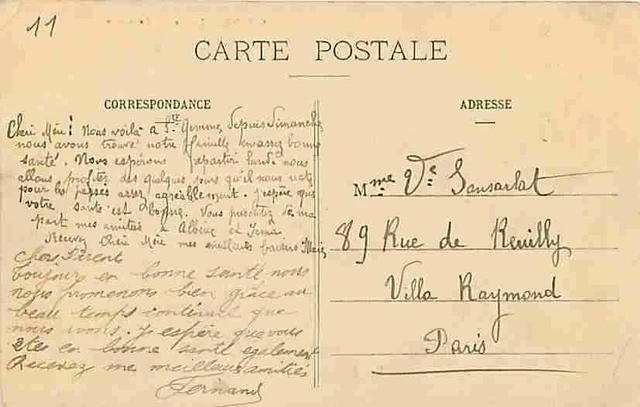 11
CARTE POSTALE
CORRESPONDANCE
Chère Mère! Nous voilà à Ste Gemme depuis Dimanche
nous avons trouvé notre famille en assez bonne
santé. Nous espérons repartir lundi nous
allons profiter des quelques jours qu'il nous reste
pour les passer assez agréablement. J'espère que
votre santé est bonne. Vous présentez de ma
part mes amitiés à
Recevez Chère Mère mes meilleurs baisers
Toujours en bonne santé nous
nous promenons bien grâce au
beau temps continuel que
nous avons. J'espère que vous
êtes en bonne santé également
Recevez mes meilleures amitiés
Fernand
ADRESSE
Mme Ve Sansarlat
89 Rue de Reuilly
Villa Raymond
Paris